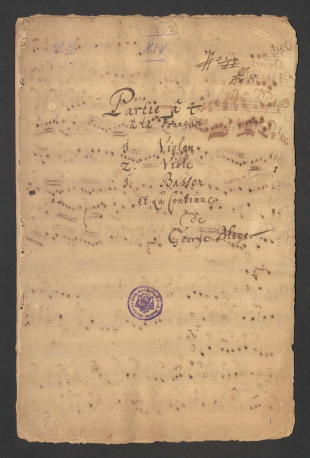 XIV
Partie à 4
à la Françoise
1. Violon
2. Viole
1. Basson
et la Continue
de
George Bleyer